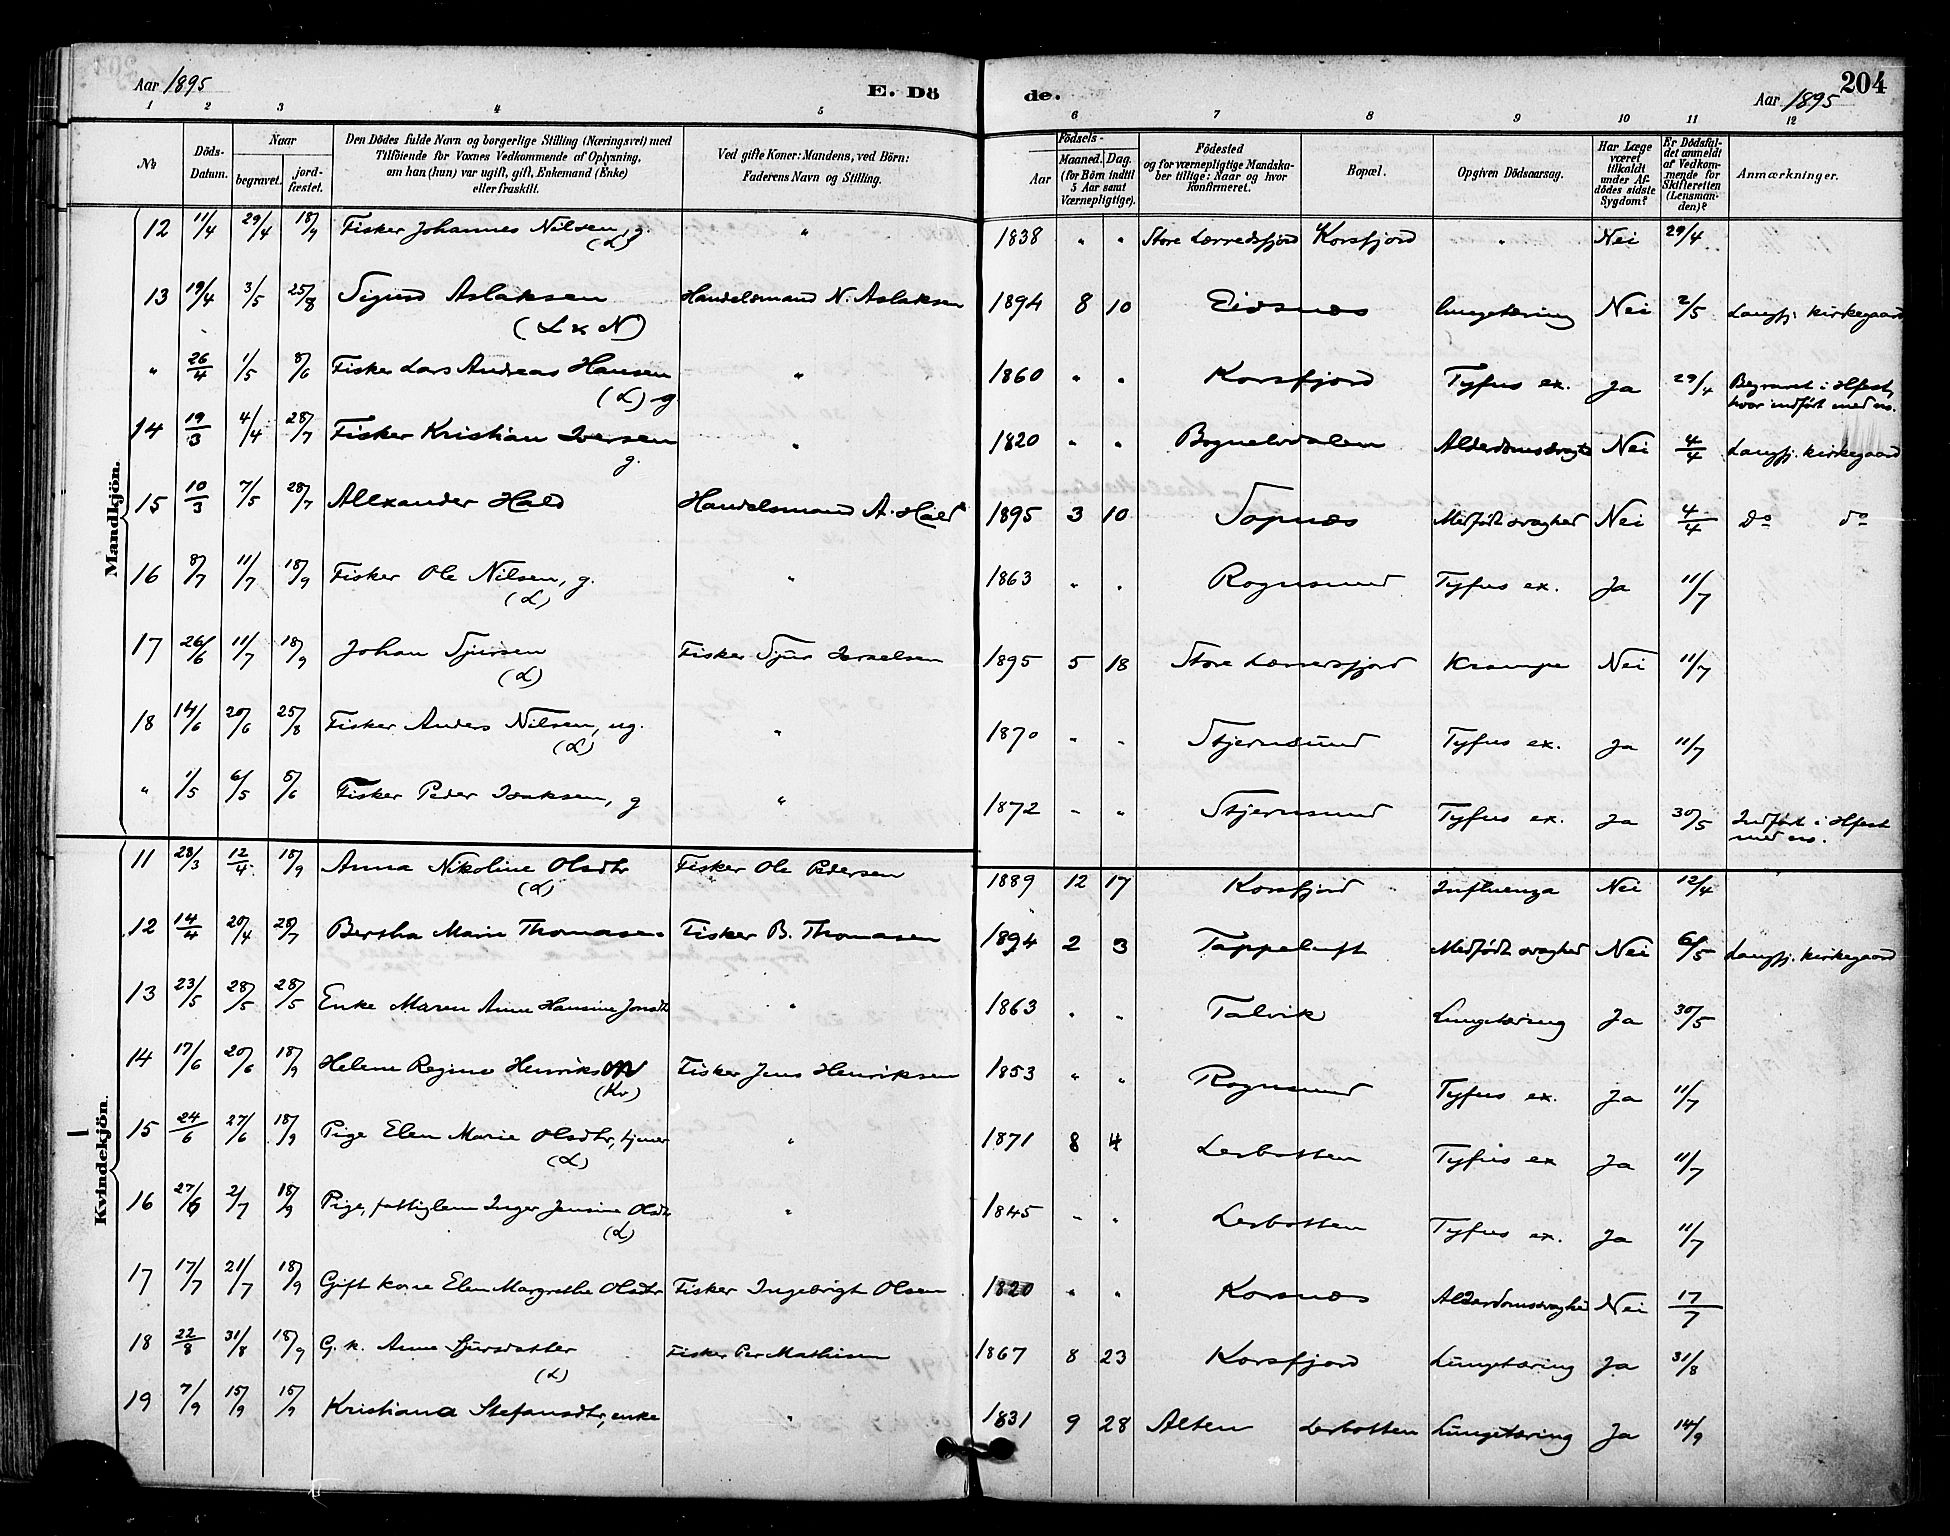 Aar 1895
E. Dö
de.
Aar 1895
204
1 2 3 4 5 6 7 8 9 10 11 12
No
Döds-
Datum.
Naar
begravet.
jord-
fæstet.
Den Dödes fulde Navn og borgerlige Stilling (Næringsvei) med
Tilföiende for Voxnes Vedkommende af Oplysning,
om han (hun) var ugift, gift, Enkemand (Enke)
eller fraskilt.
Ved gifte Koner: Mandens, ved Börn:
Faderens Navn og Stilling.
Födsels-
Aar
Maaned. Dag.
(for Börn indtil
5 Aar samt
Værnepligtige).
Födested
og for værnepligtige Mandska-
ber tillige: Naar og hvor
konfirmeret.
Bopæl.
Opgiven Dödsaarsag.
Har Læge
været
tilkaldt
under Af-
dödes sidste
Sygdom?
Er Dödsfal-
det anmeldt
af Vedkom-
mende for
Skifteretten
(Lensman-
den)?
Anmærkninger.
Mandkjön.
12 11/4 29/4 18/9 Fisker Johannes Nilsen, g. (L) " 1838 " " Store Lerredsfjord Korsfjord " Nei 29/4
13 19/4 3/5 25/8 Sigurd Aslaksen Handelsmand N. Aslaksen 1894 8 10 Eidsnæs lungetæring Nei 2/5 Langfj. kirkegaard
(L & N)
" 26/4 1/5 8/6 Fisker Lars Andreas Hansen " 1860 " " Korsfjord Tyfus ex. Ja 29/4 Begravet i Hfest,
(L) g hvor indført med no.
14 19/3 4/4 28/7 Fisker Kristian Iversen g. " 1820 " " Bognelvdalen Alderdomssvaghed Nei 4/4 Langfj. kirkegaard
15 10/3 7/5 28/7 Alexander Hald Handelsmand A. Hald 1895 3 10 Sopnæs Medfødt svaghed Nei 4/4 do do
16 8/7 11/7 18/9 Fisker Ole Nilsen, g. (L) " 1863 " " Rognsund Tyfus ex. Ja 11/7
17 26/6 11/7 18/9 Johan Sjursen (L) Fisker Sjur Israelsen 1895 5 18 Store Lerresfjord Krampe Nei 11/7
18 14/6 20/6 25/8 Fisker Anders Nilsen, ug. (L) " 1870 " " Stjernsund Tyfus ex. Ja 11/7
" 1/5 6/5 8/6 Fisker Peder Isaksen, g " 1872 " " Stjernsund Tyfus ex. Ja 30/5 Indført i Hfest
med no.
Kvindekjön.
11 28/3 12/4 18/9 Anna Nikoline Olsdtr (L) Fisker Ole Pedersen 1889 12 17 Korsfjord Influenza Nei 12/4
12 14/4 20/4 28/7 Bertha Marie Thomasen Fisker B. Thomasen 1894 2 3 Tappeluft Medfødt svaghed Nei 6/5 Langfj. kirkegaard
13 23/5 28/5 28/5 Enke Maren Anne Hansine Jonsdtr " 1863 " " Talvik Lungetæring Ja 30/5
14 17/6 20/6 18/9 Helene Regine Henriksen (Kv) Fisker Jens Henriksen 1853 " " Rognsund Tyfus ex. Ja 11/7
15 24/6 27/6 18/9 Pige Elen Marie Olsdtr, tjener (L) " 1871 8 4 Lerbotten Tyfus ex Ja 11/7
16 27/6 2/7 18/9 Pige, fattiglem Inger Jensine Olsdtr (L) " 1845 " " Lerbotten Tyfus ex. Ja 11/7
17 17/7 21/7 18/9 Gift kone Elen Margrethe Olsdtr Fisker Ingebrigt Olsen 1820 " " Korsnæs Alderdomssvaghed Nei 17/7
18 22/8 31/8 18/9 G. k. Anne Sjursdatter (L) Fisker Per Mathisen 1867 8 23 Korsfjord Lungetæring Ja 31/8
19 7/9 15/9 15/9 Kristiana Stefansdtr, enke " 1831 9 28 Alten Lerbotten Lungetæring Ja 14/9